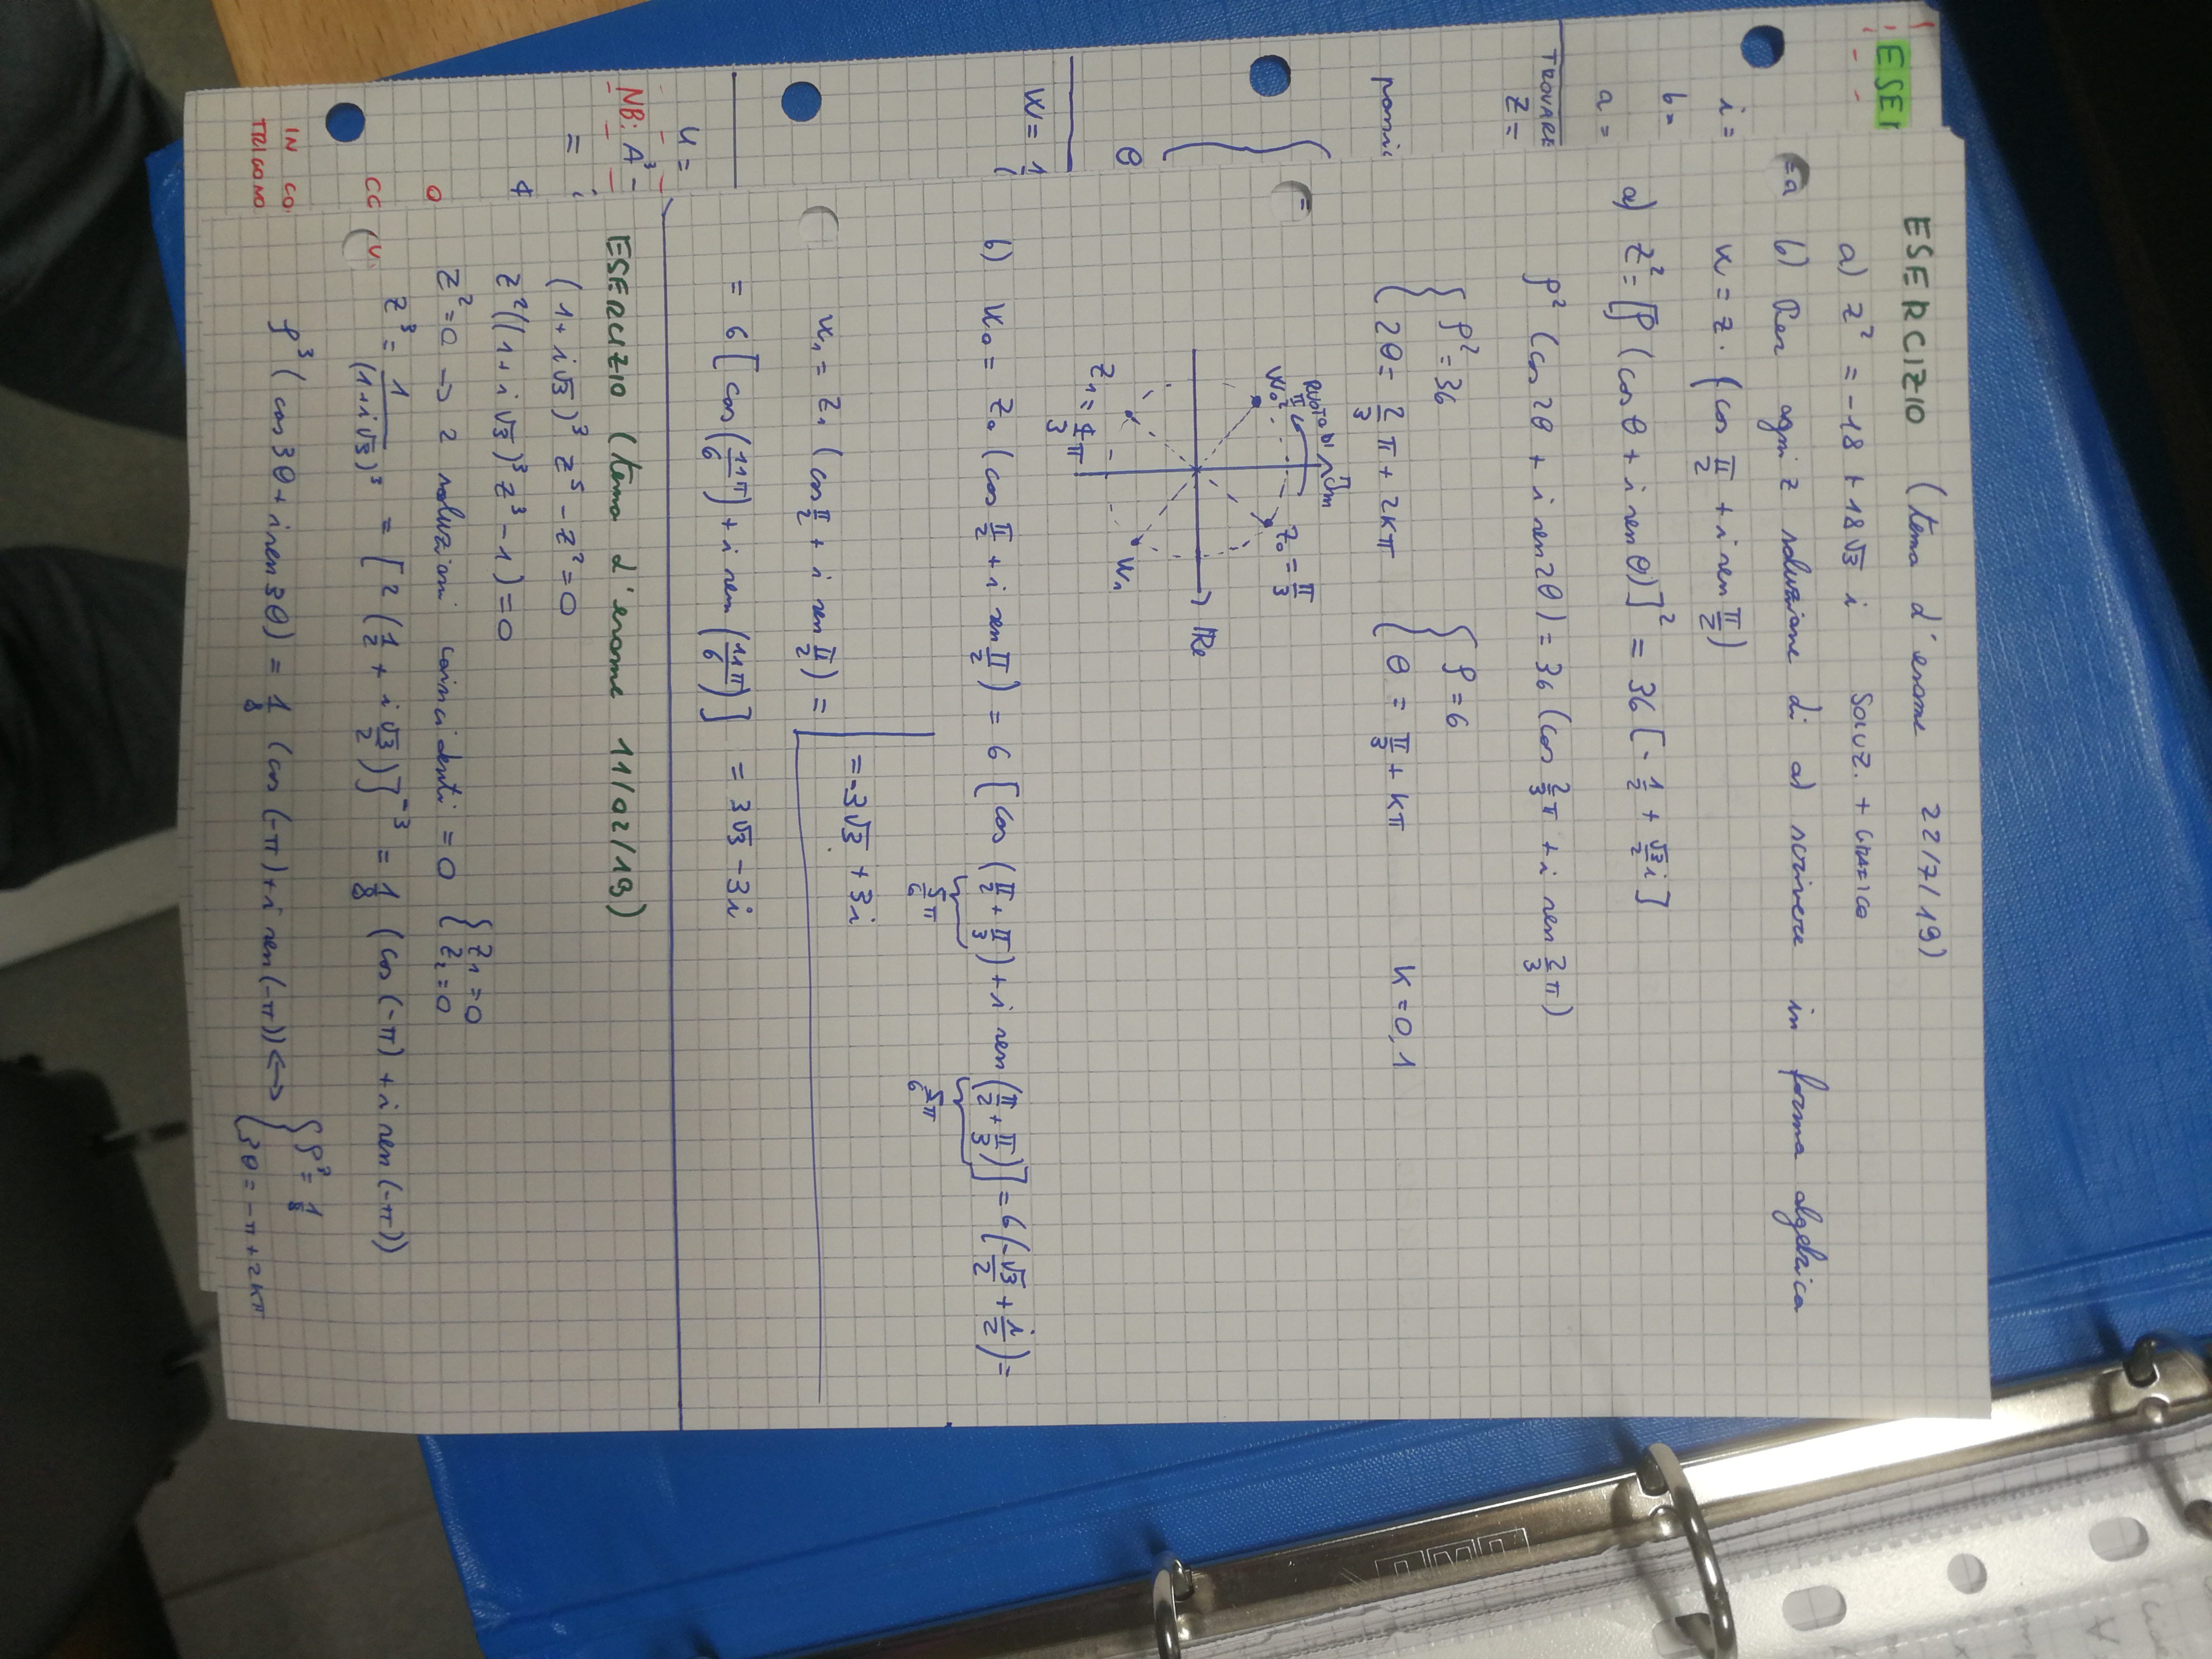 ESERCIZIO (tema d'esame 22/7/19)
a) z² = -18 + 18√3 i SOLUZ. + GRAFICO
b) Per ogni z soluzione di a) scrivere in forma algebrica
w = z · (cos π/2 + i sen π/2)
a) z² = [ρ (cos θ + i sen θ)]² = 36 [-1/2 + √3/2 i]
ρ² (cos 2θ + i sen 2θ) = 36 (cos 2/3 π + i sen 2/3 π)
{ ρ² = 36 { ρ = 6
{ 2θ = 2/3 π + 2kπ { θ = π/3 + kπ K = 0,1
RUOTO DI π/2
Im
z₀ = π/3
w₀
Re
w₁
z₁ = 4/3 π
b) w₀ = z₀ (cos π/2 + i sen π/2) = 6 [cos (π/2 + π/3) + i sen (π/2 + π/3)] = 6 (-√3/2 + i/2) =
5/6 π 5/6 π
= -3√3 + 3i
w₁ = z₁ (cos π/2 + i sen π/2) =
= 6 [cos (11π/6) + i sen (11π/6)] = 3√3 - 3i
ESERCIZIO (tema d'esame 11/02/19)
(1 + i√3)³ z⁵ - z² = 0
z² ((1 + i√3)³ z³ - 1) = 0
z² = 0 → 2 soluzioni coincidenti = 0 { z₁ = 0
{ z₂ = 0
z³ = 1/(1+i√3)³ = [2 (1/2 + i √3/2)]⁻³ = 1/8 (cos (-π) + i sen (-π))
ρ³ (cos 3θ + i sen 3θ) = 1/8 (cos (-π) + i sen (-π)) <=> { ρ³ = 1/8
{ 3θ = -π + 2kπ
ESE
i =
b =
= a
a =
TROVARE
z =
=
θ
w = 1/
u =
NB: A³ -
= i
O
CC
IN CO
TRIGONO